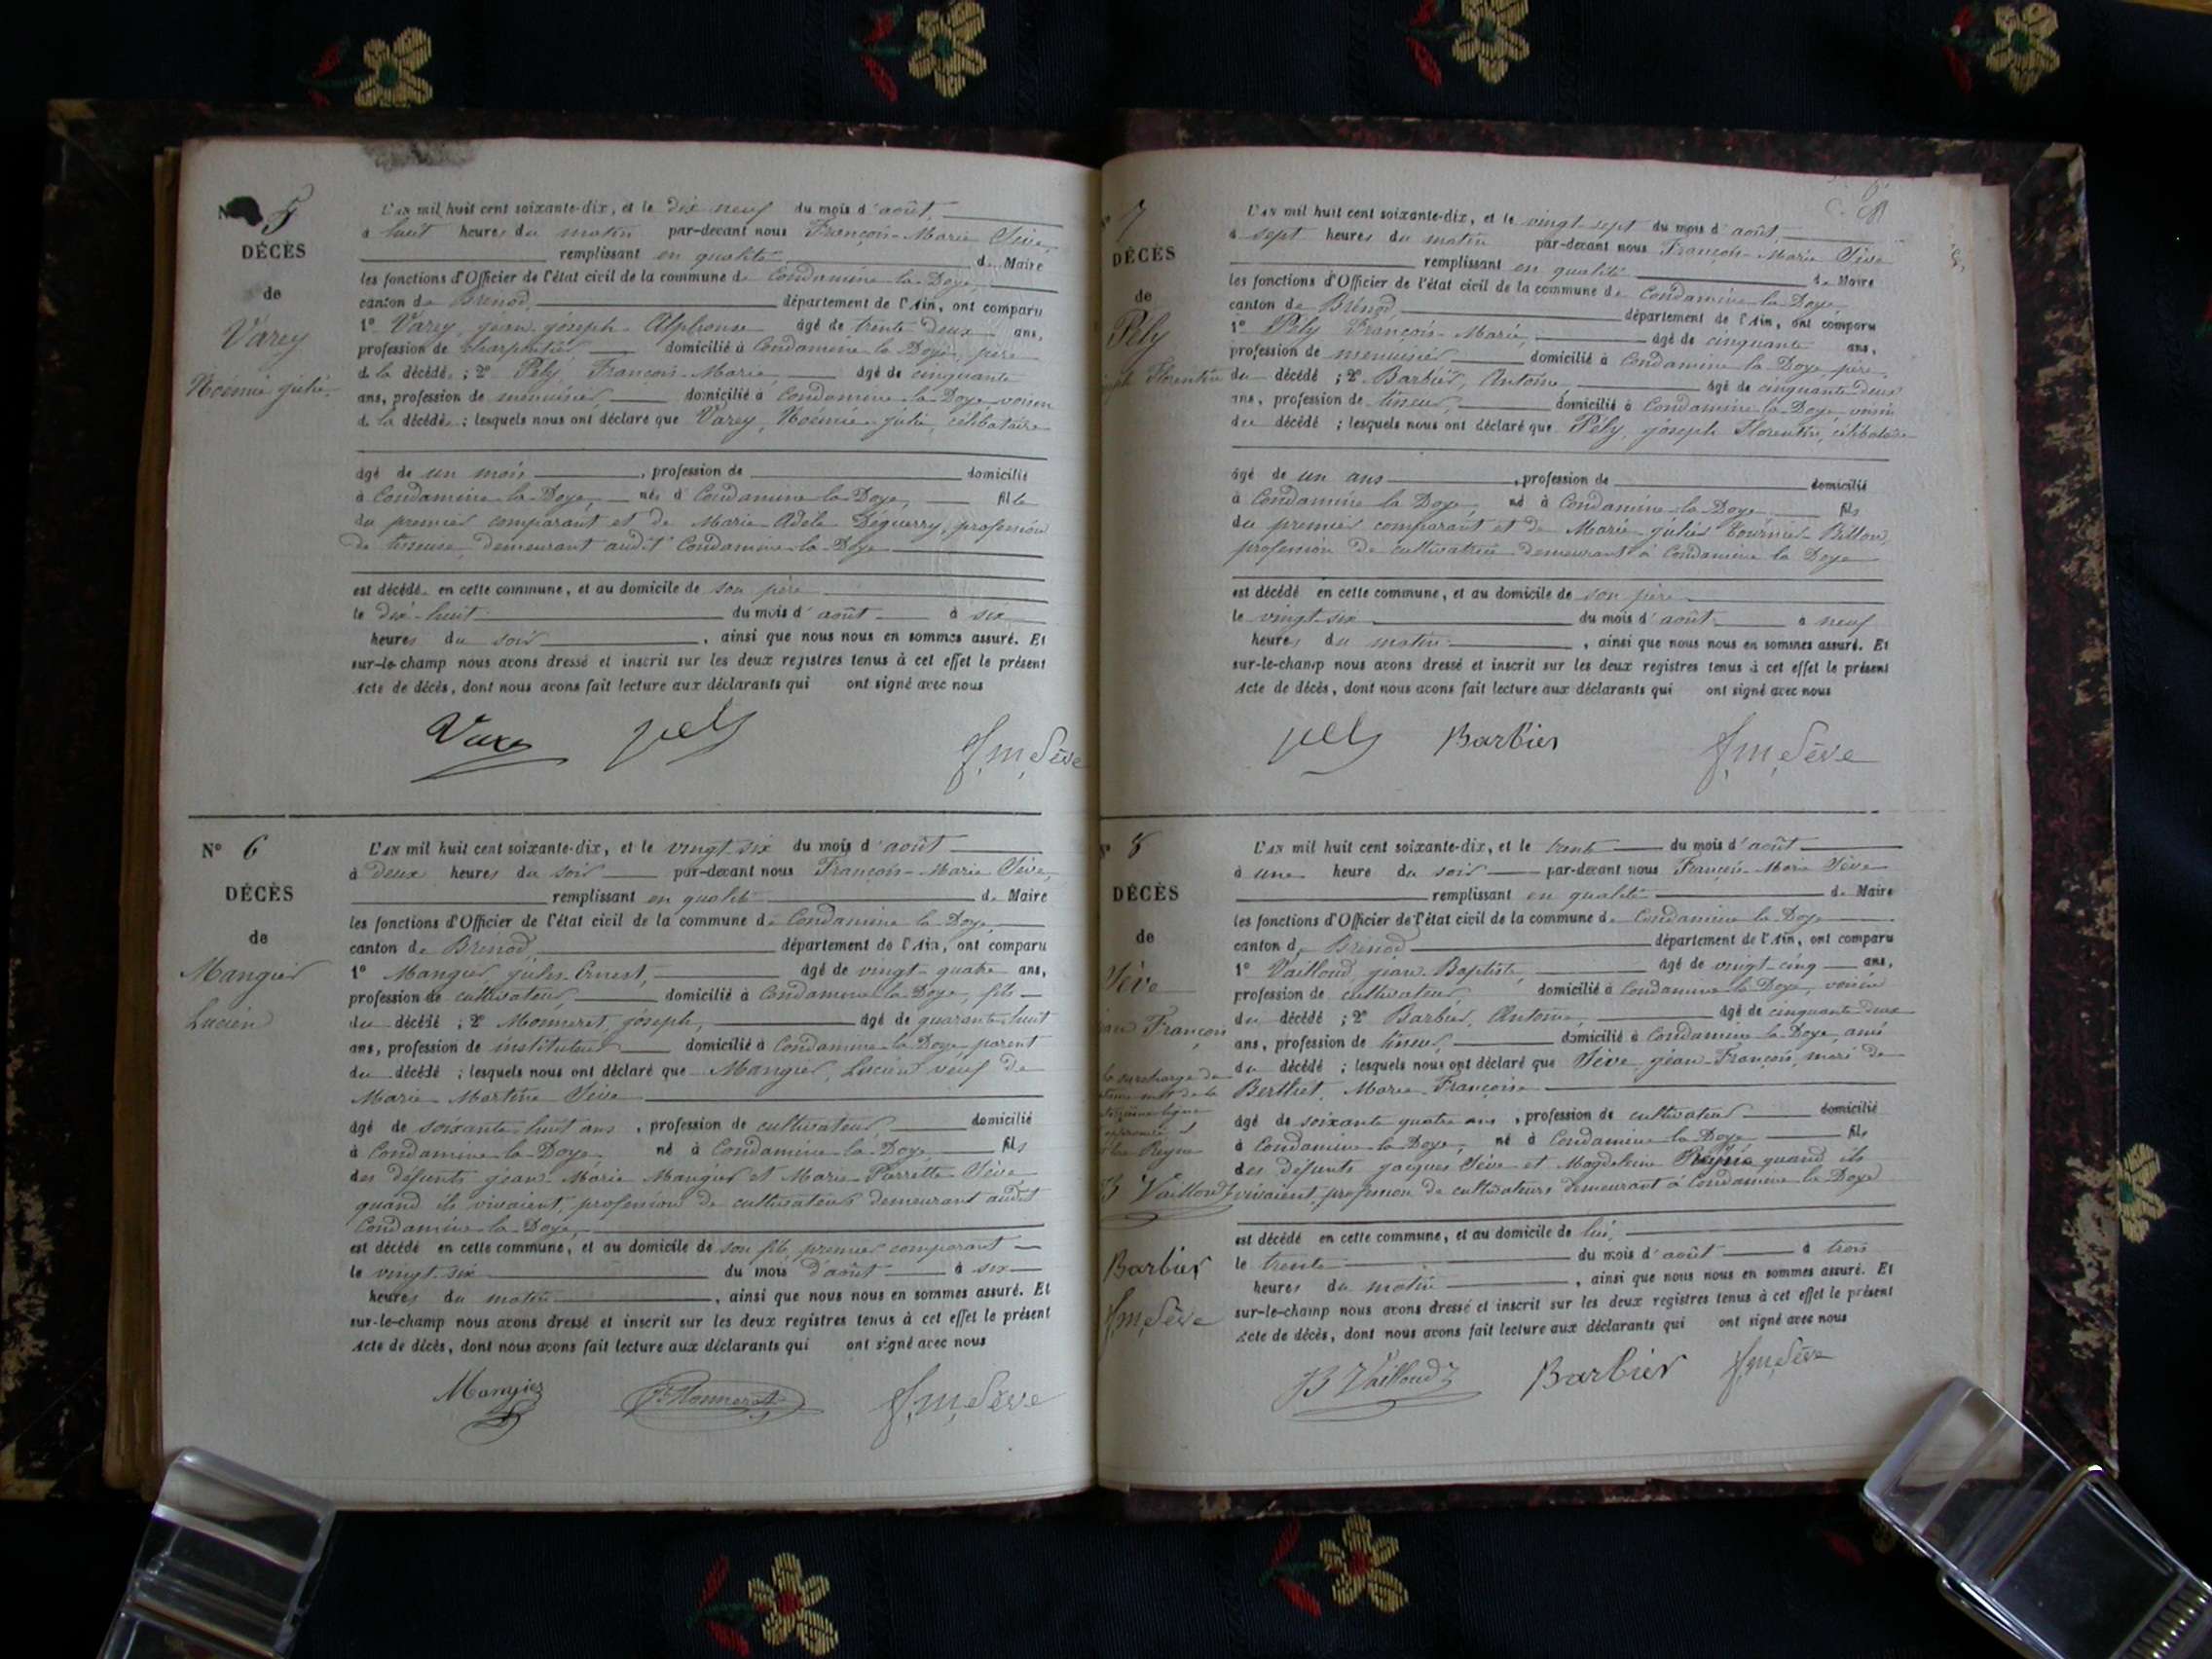 N° 5
DÉCÈS
de
Varey
Noémie julie
L'AN mil huit cent soixante-dix, et le dix neuf du mois d'août
à huit heures du matin par-devant nous François-Marie Sève,
remplissant en qualité de Maire
les fonctions d'Officier de l'état civil de la commune de Condamine-la-Doye,
canton de Brénod, département de l'Ain, ont comparu
1° Varey, jean-joseph-Alphonse âgé de trente deux ans,
profession de charpentier domicilié à Condamine-la-Doye, père
de la décédée ; 2° Pély, François-Marie, âgé de cinquante
ans, profession de menuisier, domicilié à Condamine-la-Doye voisin
de la décédée ; lesquels nous ont déclaré que Varey, Noémie-julie, célibataire
âgé de un mois, profession de domicilié
à Condamine-la-Doye, née à Condamine-la-Doye, fille
du premier comparant et de Marie-Adèle Déguerry, profession
de tisseuse, demeurant audit Condamine-la-Doye
est décédée en cette commune, et au domicile de son père
le dix-huit du mois d'août à six
heures du soir, ainsi que nous nous en sommes assuré. Et
sur-le-champ nous avons dressé et inscrit sur les deux registres tenus à cet effet le présent
Acte de décès, dont nous avons fait lecture aux déclarants qui ont signé avec nous
Varey pely f,m,Sève
N° 6
DÉCÈS
de
Mangier
Lucien
L'AN mil huit cent soixante-dix, et le vingt-six du mois d'août
à deux heures du soir par-devant nous François-Marie Sève,
remplissant en qualité de Maire
les fonctions d'Officier de l'état civil de la commune de Condamine-la-Doye,
canton de Brénod, département de l'Ain, ont comparu
1° Mangier, jules-Ernest, âgé de vingt-quatre ans,
profession de cultivateur, domicilié à Condamine-la-Doye, fils
du décédé ; 2° Monneret, joseph, âgé de quarante-huit
ans, profession de instituteur domicilié à Condamine-la-Doye, parent
du décédé ; lesquels nous ont déclaré que Mangier, Lucien veuf de
Marie-Martine Sève
âgé de soixante-huit ans, profession de cultivateur domicilié
à Condamine-la-Doye né à Condamine-la-Doye fils
des défunts jean-Marie Mangier et Marie-Pierrette Sève
quand ils vivaient, profession de cultivateurs demeurant audit
Condamine-la-Doye,
est décédé en cette commune, et au domicile de son fils, premier comparant
le vingt-six du mois d'août à six
heures du matin, ainsi que nous nous en sommes assuré. Et
sur-le-champ nous avons dressé et inscrit sur les deux registres tenus à cet effet le présent
Acte de décès, dont nous avons fait lecture aux déclarants qui ont signé avec nous
Mangier Monneret f,m,Sève
N° 7
DÉCÈS
de
Pély
joseph Florentin
L'AN mil huit cent soixante-dix, et le vingt-sept du mois d'août
à sept heures du matin par-devant nous François-Marie Sève
remplissant en qualité de Maire
les fonctions d'Officier de l'état civil de la commune de Condamine-la-Doye,
canton de Brénod département de l'Ain, ont comparu
1° Pély François-Marie, âgé de cinquante ans,
profession de menuisier domicilié à Condamine-la-Doye père
du décédé ; 2° Barbier, Antoine âgé de cinquante-deux
ans, profession de tisseur, domicilié à Condamine-la-Doye, voisin
du décédé ; lesquels nous ont déclaré que Pély, joseph Florentin, célibataire
âgé de un ans, profession de domicilié
à Condamine la Doye, né à Condamine-la-Doye fils
du premier comparant et de Marie-julie Tournier-Billon,
profession de cultivatrice demeurant à Condamine la Doye
est décédé en cette commune, et au domicile de son père
le vingt-six du mois d'août à neuf
heures du matin, ainsi que nous nous en sommes assuré. Et
sur-le-champ nous avons dressé et inscrit sur les deux registres tenus à cet effet le présent
Acte de décès, dont nous avons fait lecture aux déclarants qui ont signé avec nous
pely Barbier f,m,Sève
N° 8
DÉCÈS
de
Sève
jean François
la surcharge du
mot de la
ligne
Reyne
B Vailloud
Barbier
f,m,Sève
L'AN mil huit cent soixante-dix, et le trente du mois d'août
à une heure du soir par-devant nous François-Marie Sève
remplissant en qualité de Maire
les fonctions d'Officier de l'état civil de la commune de Condamine-la-Doye
canton de Brénod département de l'Ain, ont comparu
1° Vailloud jean-Baptiste, âgé de vingt-cinq ans,
profession de cultivateur domicilié à Condamine-la-Doye, voisin
du décédé ; 2° Barbier, Antoine, âgé de cinquante-deux
ans, profession de tisseur, domicilié à Condamine-la-Doye, ami
du décédé ; lesquels nous ont déclaré que Sève jean-François, mari de
Berthet, Marie-Françoise
âgé de soixante quatre ans, profession de cultivateur domicilié
à Condamine-la-Doye, né à Condamine-la-Doye fils
des défunts jacques Sève et Magdeleine quand ils
vivaient, profession de cultivateurs demeurant à Condamine la Doye
est décédé en cette commune, et au domicile de lui,
le trente du mois d'août à trois
heures du matin, ainsi que nous nous en sommes assuré. Et
sur-le-champ nous avons dressé et inscrit sur les deux registres tenus à cet effet le présent
Acte de décès, dont nous avons fait lecture aux déclarants qui ont signé avec nous
B Vailloud Barbier f,m,Sève